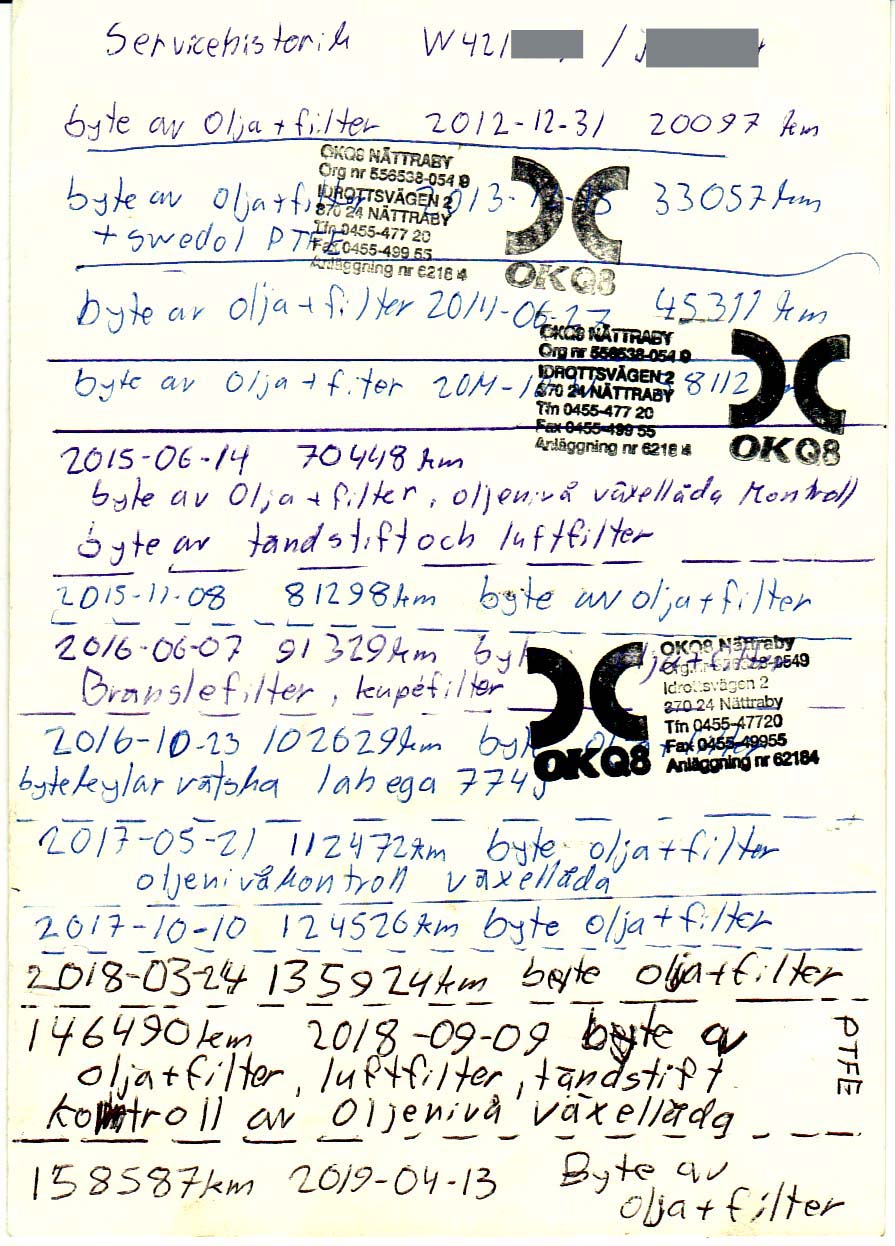 Servicehistorik W421 /
byte av olja + filter 2012-12-31 20097 km
OKQ8 NÄTTRABY
Org nr 556538-054 9
IDROTTSVÄGEN 2
370 24 NÄTTRABY
Tfn 0455-477 20
Fax 0455-499 55
Anläggning nr 6218 4
OKQ8
byte av olja + filter 33057 km
+ swedol PTFE
byte av olja + filter 2014-06-27 45311 km
OKQ8 NÄTTRABY
Org nr 556538-054 9
IDROTTSVÄGEN 2
370 24 NÄTTRABY
Tfn 0455-477 20
Fax 0455-499 55
Anläggning nr 6218 4
OKQ8
byte av olja + filter
2015-06-14 70448 km
byte av olja + filter, oljenivå växellåda kontroll
byte av tändstift och luftfilter
2015-11-08 81298 km byte av olja + filter
2016-06-07 91329 km olja + filter
Bränslefilter, kupéfilter
OKQ8
OKQ8 Nättraby
Idrottsvägen 2
370 24 Nättraby
Tfn 0455-47720
Fax 0455-49955
Anläggning nr 62184
2016-10-23 102629 km
byte kylar vätska lahega 774
2017-05-21 112472 km byte olja + filter
oljenivåkontroll växellåda
2017-10-10 124526 km byte olja + filter
2018-03-24 135924 km byte olja + filter
146490 km 2018-09-09 byte av
olja + filter, luftfilter, tändstift
kontroll av oljenivå växellåda
PTFE
158587 km 2019-04-13 Byte av
olja + filter